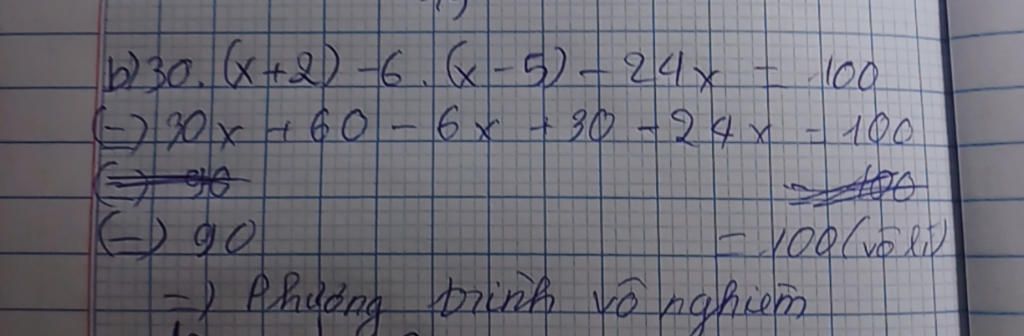 b) 30. (x+2) - 6. (x-5) - 24x = 100
(=) 30x + 60 - 6x + 30 - 24x = 100
(=) 90 = 100
(=) 90 = 100 (vô lí)
=) Phương trình vô nghiệm